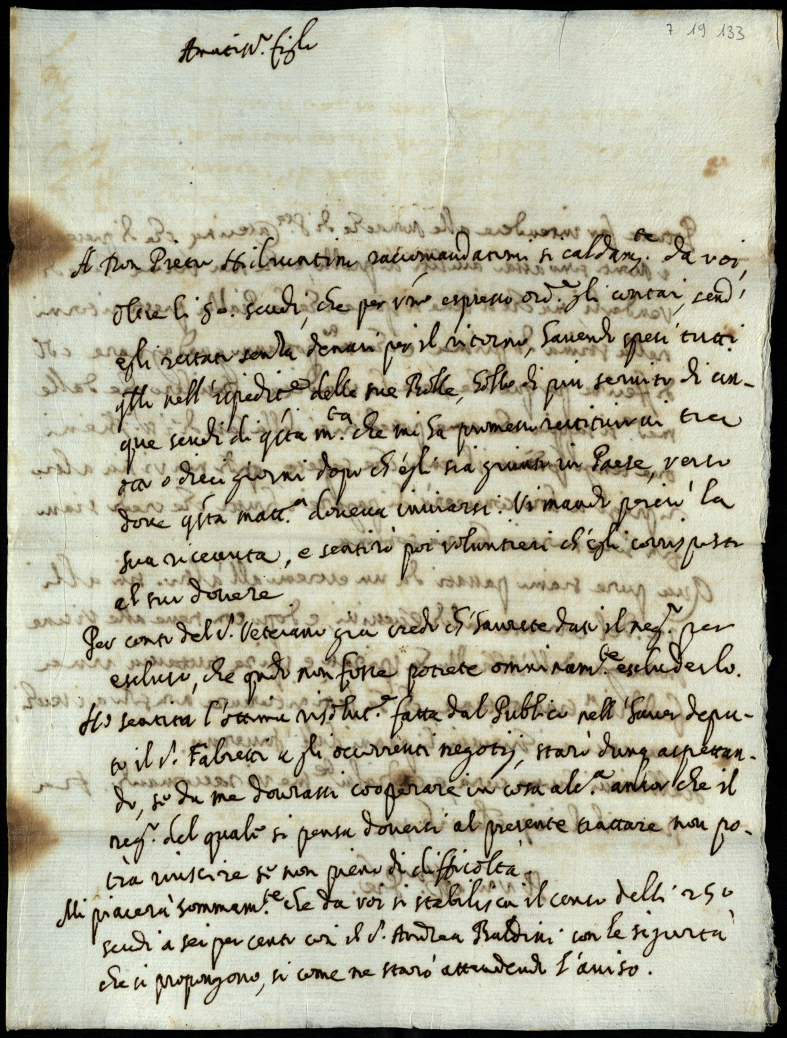 7 19 133
Amatiss.i figli
A Don Pietro Hilvuntini raccomandatomi si caldam.te da voi,
oltre li 50. scudi, che per vro espresso ord.e gli contai, send'
egli restato senza denari per il ritorno, havendo spesi tutti
qlli nell'ispedit.e delle sue Bolle, hollo di più servito di cin-
que scudi di q'sta m.ta che mi ha promesso restituirvi tra
otto o dieci giorni dopo ch'egli sia giunto in Paese, verso
dove q'sta matt.a doveva inviarsi. Vi mando perciò la
sua ricevuta, e sentirò poi voluntieri ch'egli corrisposto
al suo dovere
Per conto del S. Veterano già credo ch'haverete dato il neg.o per
escluso, che qndo non fosse potrete omninam.te escluderlo.
Ho sentita l'ottima risolut.e fatta dal Publico nell'haver depu-
to il S. Fabretti a gli occurrenti negotij, starò dunq aspettan-
do, se da me dovrassi cooperare in cosa alc.a ancor che il
neg.o del quale si pensa doversi al presente trattare non po-
trà riuscire se non pieno di difficoltà.
Mi piacerà sommam.te che da voi si stabilisca il censo delli 250
scudi a sei per cento con il S. Andrea Baldini con le sigurtà
che si propongono, si come ne starò attendendo l'aviso.